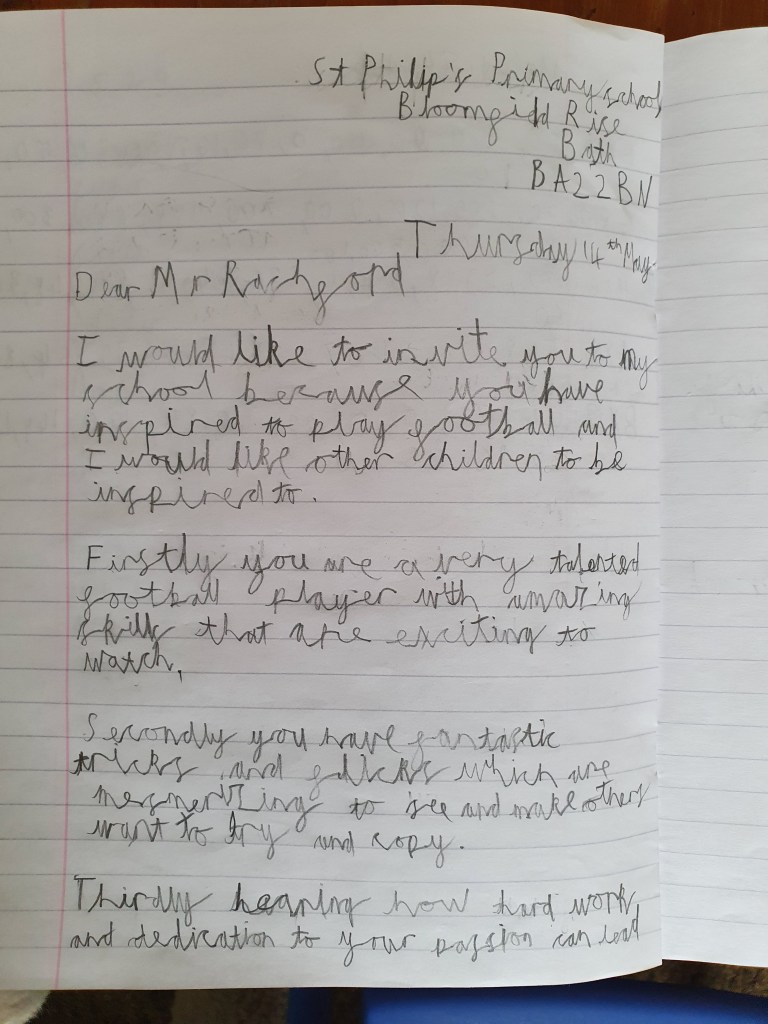 St Philip's Primary school
Bloomfield Rise
Bath
BA22BN
Thursday 14th May
Dear Mr Rashford
I would like to invite you to my
school because you have
inspired to play football and
I would like other children to be
inspired to.
Firstly you are a very talented
football player with amazing
skills that are exciting to
watch,
Secondly you have fantastic
tricks and flicks which are
mesmerizing to see and make others
want to try and copy.
Thirdly hearing how hard work
and dedication to your passion can lead